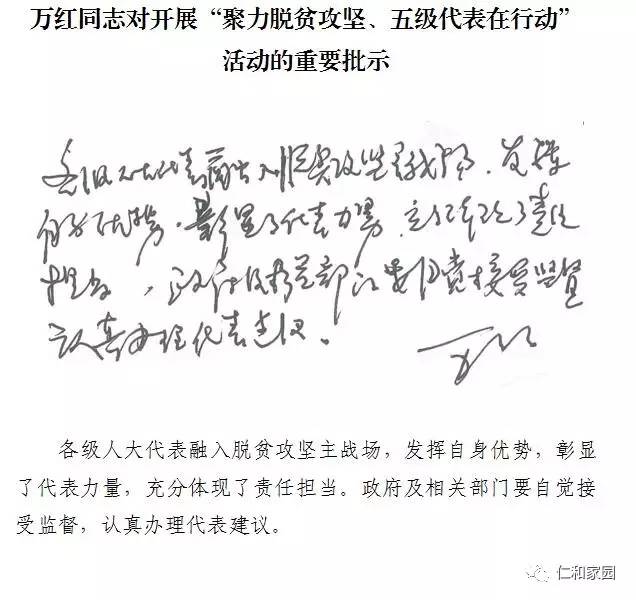 万红同志对开展“聚力脱贫攻坚、五级代表在行动”
活动的重要批示
各级人大代表融入脱贫攻坚主战场，发挥
自身优势，彰显了代表力量，充分体现了责任
担当，政府及相关部门要自觉接受监督
认真办理代表建议。
万红
各级人大代表融入脱贫攻坚主战场，发挥自身优势，彰显
了代表力量，充分体现了责任担当。政府及相关部门要自觉接
受监督，认真办理代表建议。
仁和家园